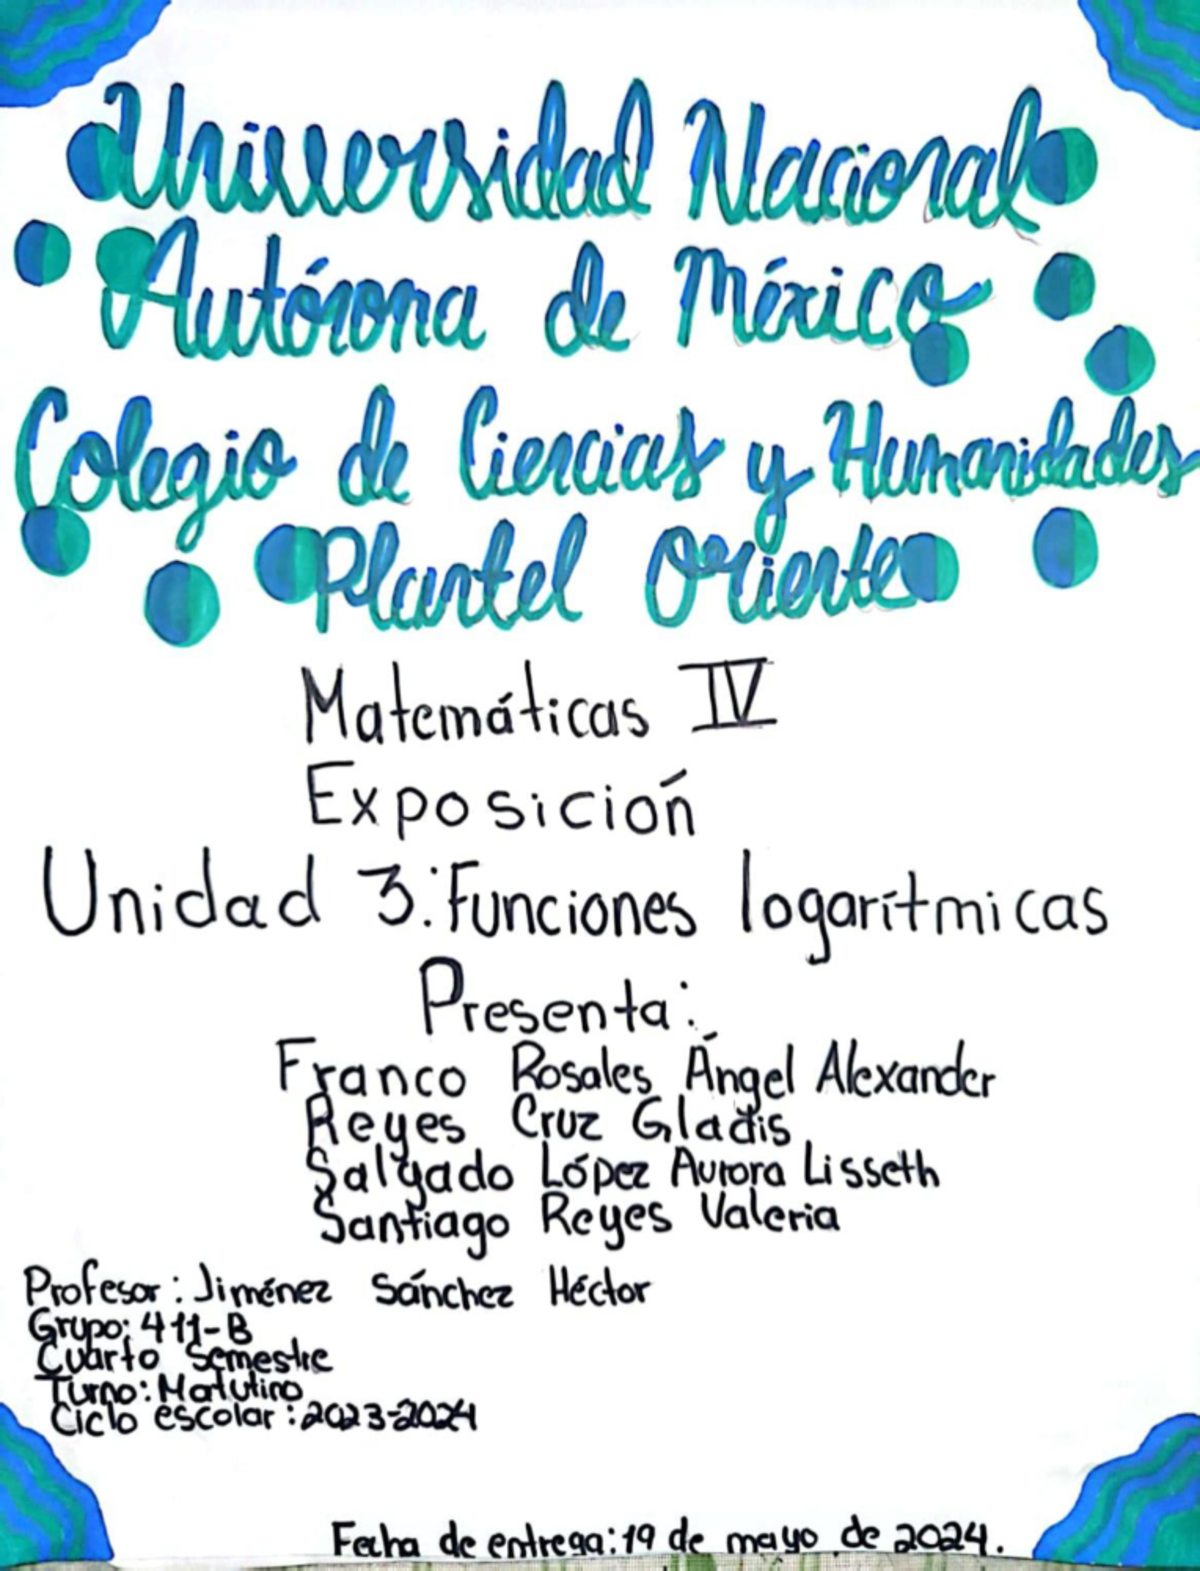 Universidad Nacional
Autónoma de México
Colegio de Ciencias y Humanidades
Plantel Oriente
Matemáticas IV
Exposición
Unidad 3: Funciones logarítmicas
Presenta:
Franco Rosales Ángel Alexander
Reyes Cruz Gladis
Salgado López Aurora Lisseth
Santiago Reyes Valeria
Profesor: Jiménez Sánchez Héctor
Grupo: 411-B
Cuarto Semestre
Turno: Matutino
Ciclo escolar: 2023-2024
Fecha de entrega: 19 de mayo de 2024.